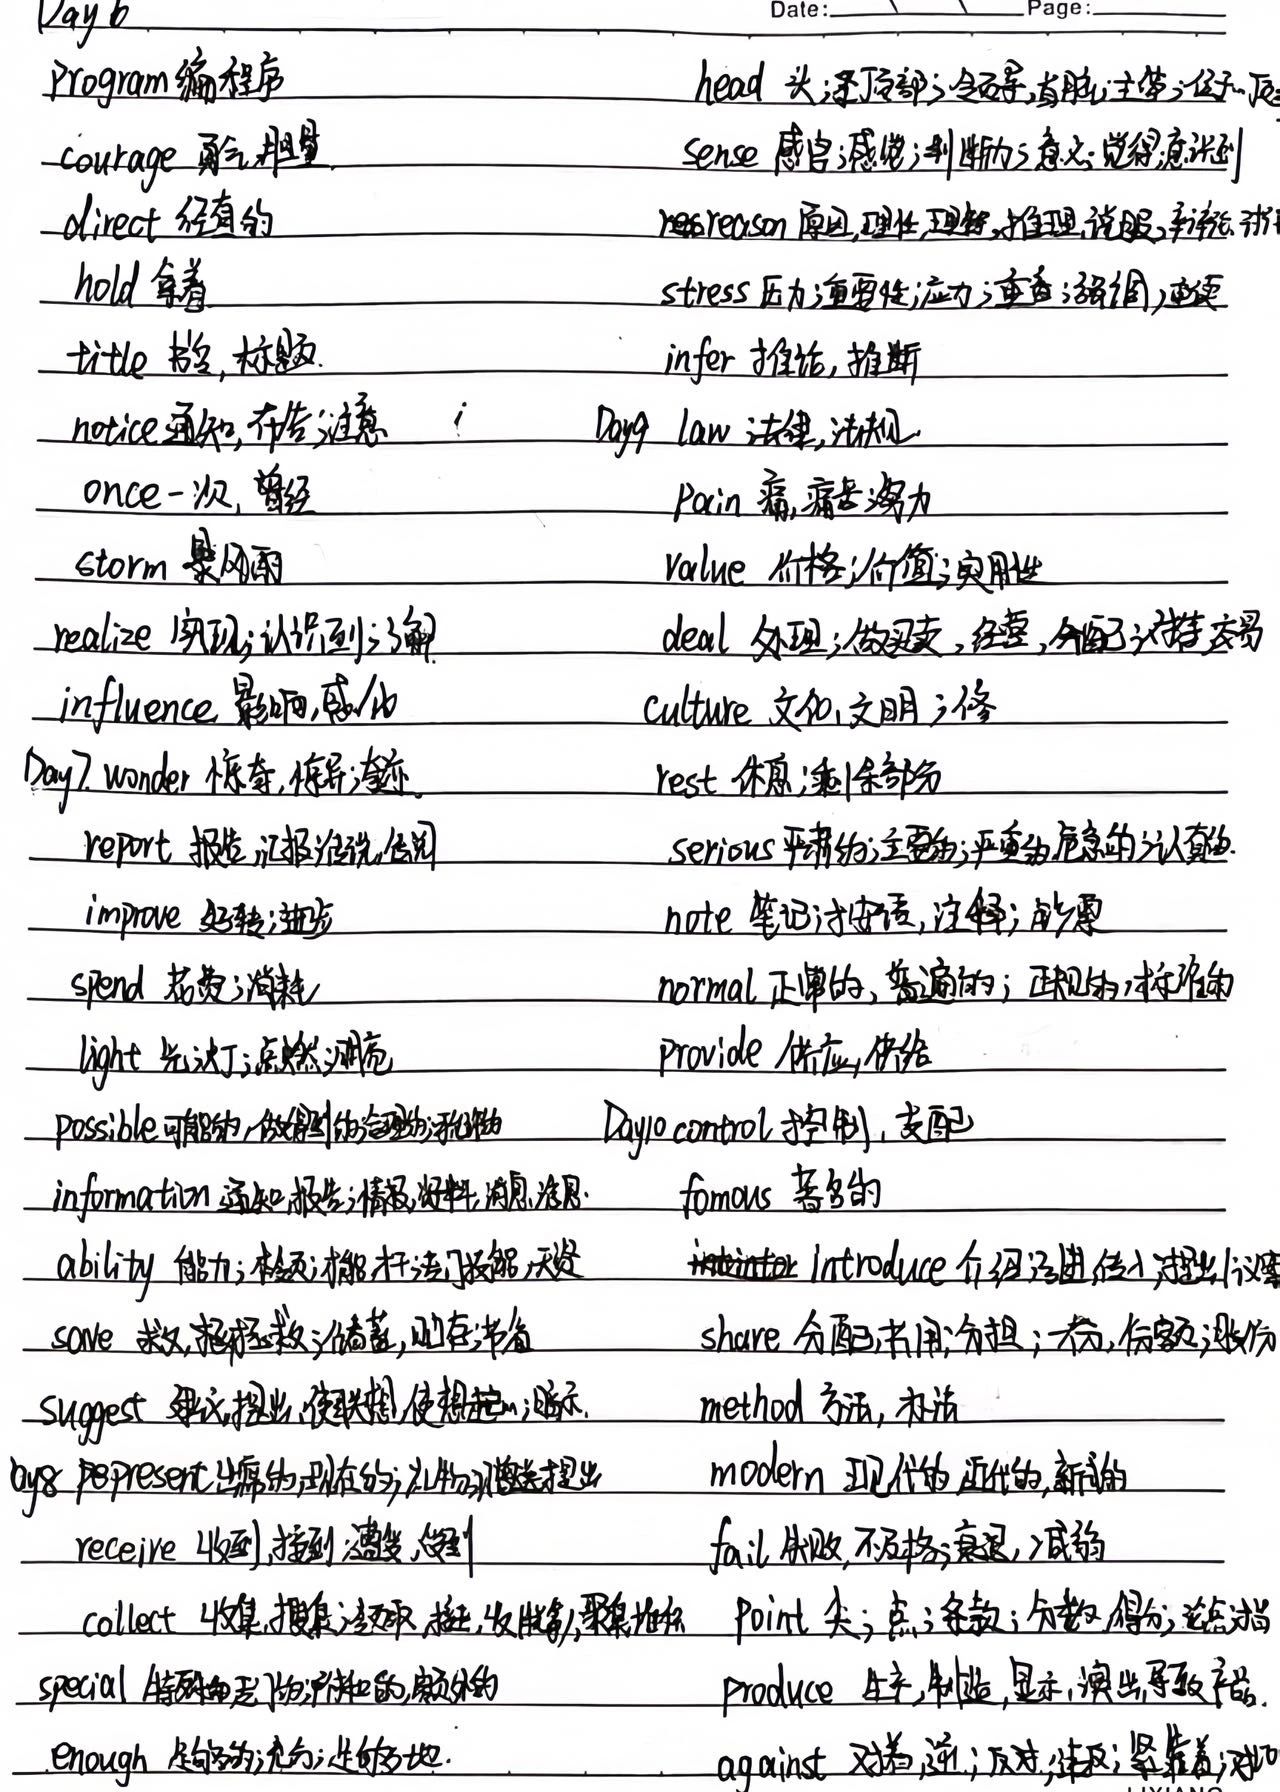 Day 6
Date: Page:
program 编程序
courage 勇气胆量
direct 径直的
hold 拿着
title 书名,标题.
notice 通知,布告;注意
once 一次,曾经
storm 暴风雨
realize 实现;认识到;了解
influence 影响,感化
Day7. wonder 惊奇,惊异;奇迹.
report 报告,汇报;传说,传闻
improve 好转;进步
spend 花费;消耗
light 光;灯;点燃;明亮
possible 可能的,做得到的;合理的
information 通知,报告;情报,资料,消息
ability 能力; 技能,天资
save 救,拯救;储蓄,贮存;节省
suggest 建议,提出,使联想,使想起…;暗示.
Day8 present 出席的,现在的;礼物;赠送 提出
receive 收到,接到;遭受,受到
collect 收集,搜集;领取,
special 特别的 专门的 额外的
enough 足够的;充分;足够地.
head 头; 顶部; 领导,首脑;主带;位于…顶
sense 感官;感觉;判断力;意义;觉得,意识到
reason 原因,理性,理解,推理,说服,辩论,讨
stress 压力;重要性;应力;重音;强调,重要
infer 推论,推断
Day9 law 法律,法规.
pain 痛,痛苦;努力
value 价格;价值;实用性
deal 处理;做买卖,经营,分配;对待;交易
culture 文化,文明;修
rest 休息;剩余部分
serious 严肃的;主要的;严重的,危急的;认真的.
note 笔记;按语,注释;钞票
normal 正常的,普遍的;正规的,标准的
provide 供应,供给
Day10 control 控制,支配
famous 著名的
introduce 介绍;引进,传入;提出(议案
share 分配,共用;分担;一份,份额;股份
method 方法,办法
modern 现代的 近代的,新式的
fail 失败,不及格;衰退,减弱
point 尖;点;条款;分数,得分;论点;指
produce 生产,制造,显示,演出,导致 产品.
against 对着,逆;反对,违反;紧靠着;对